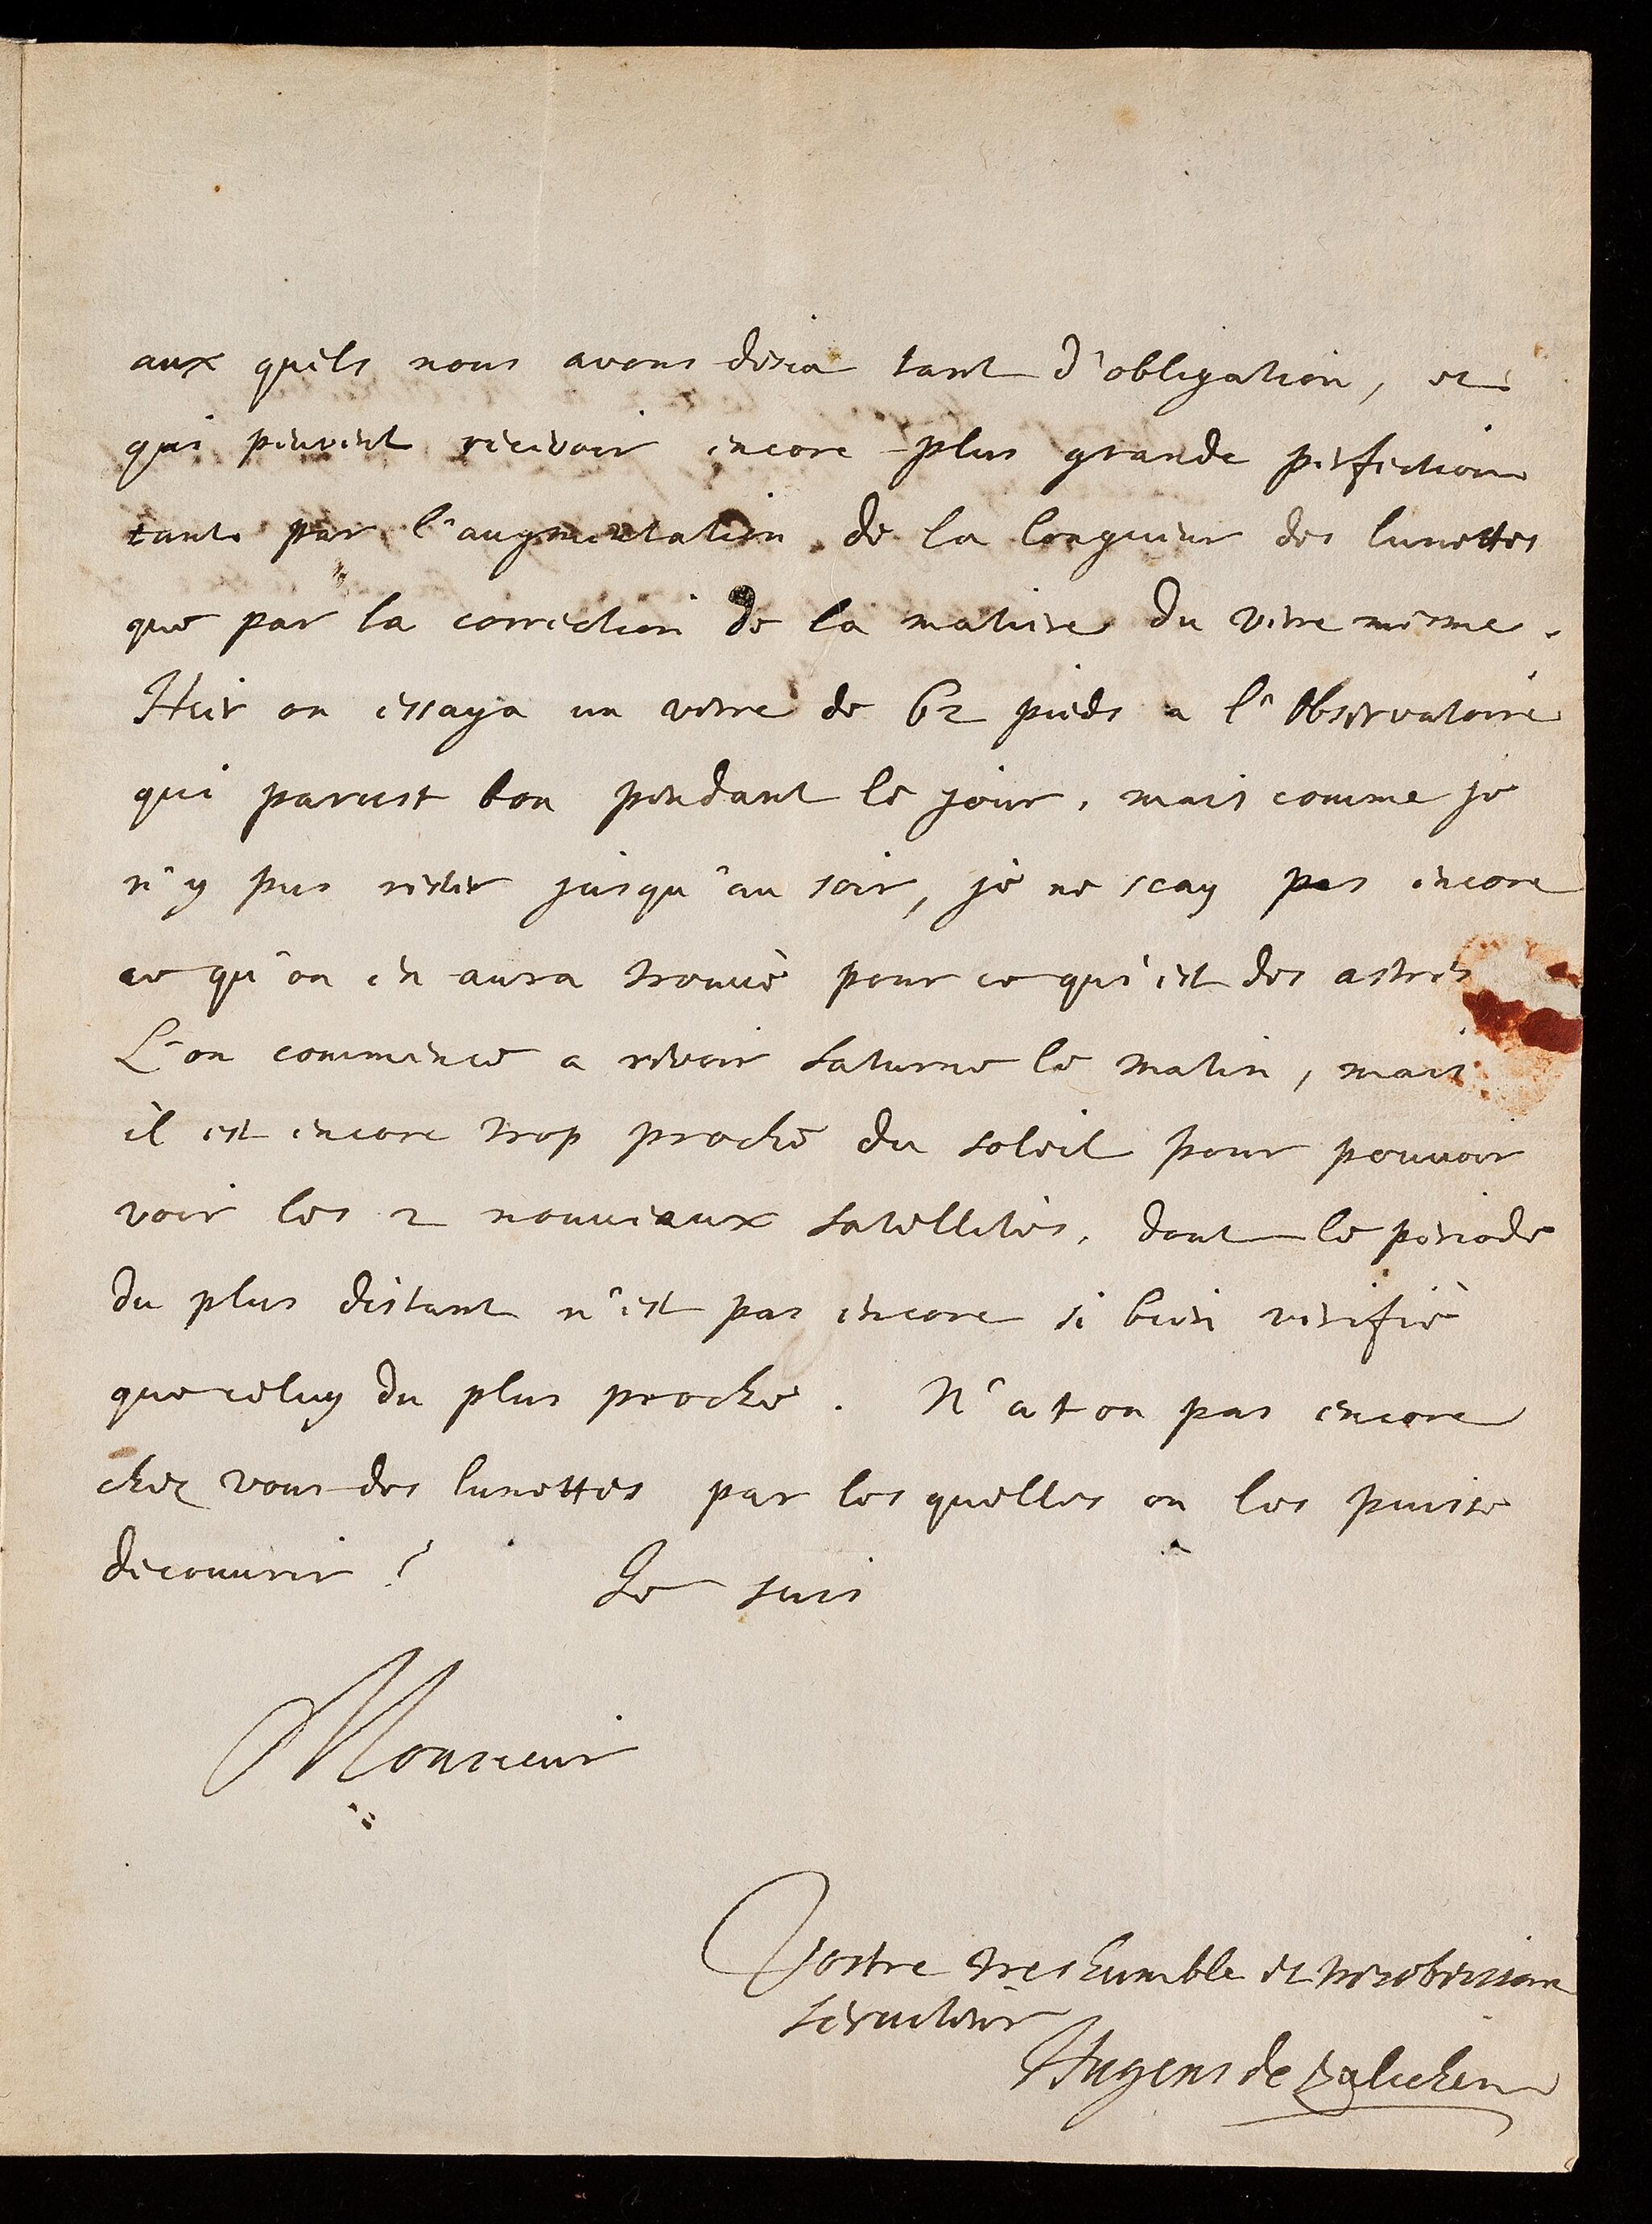 aux quels nous avons desia tant d'obligation, et
qui peuvent recevoir encore plus grande perfection
tant par l'augmentation de la longueur des lunettes
que par la correction de la matiere du verre mesme.
Hier on essaya un verre de 62 pieds a l'Observatoire
qui parust bon pendant le jour, mais comme je
n'y pus rester jusqu'au soir, je ne scay pas encore
ce qu'on en aura trouuè pour ce qui est des astres
L'on commence a revoir Saturne le matin, mais
il est encore trop proche du soleil pour pouvoir
voir les 2 nouveaux satellites, dont le periode
du plus distant n'est pas encore si bien verifiè
que celuy du plus proche. N'a t on pas encore
chez vous des lunettes par les quelles on les puisse
decouvrir? Je suis
Monsieur
Vostre treshumble et tresobeissant
serviteur
Hugens de Zulichem